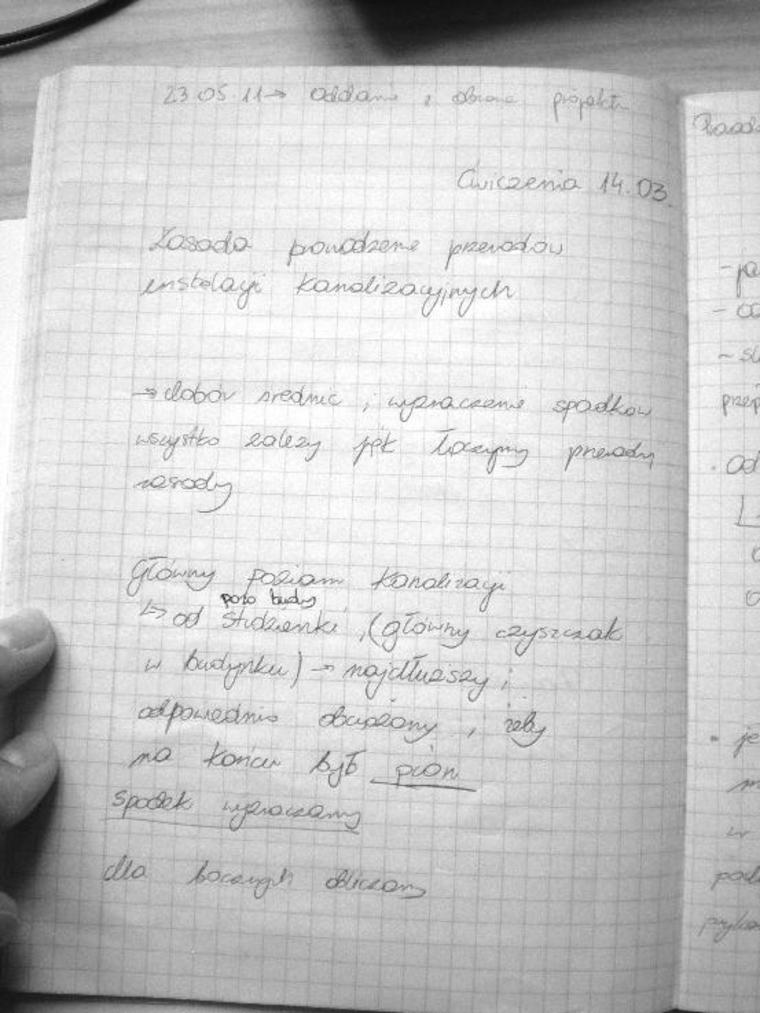 23.05.11 → oddanie i obrona projektu
Ćwiczenia 14.03.
Zasada prowadzenie przewodów
instalacji kanalizacyjnych
→ dobór średnic, wyznaczenie spadków
wszystko zależy jak łączymy przewody
zasady
główny poziom kanalizacji
poza budy
↳ od studzienki, (główny czyszczak
w budynku) → najdłuższy i
odpowiednio obciążony, żeby
na końcu był pion
spadek wyznaczamy
dla bocznych obliczamy
- ja
-
- sł
przep
. od
• je
m
w
pod
przyka